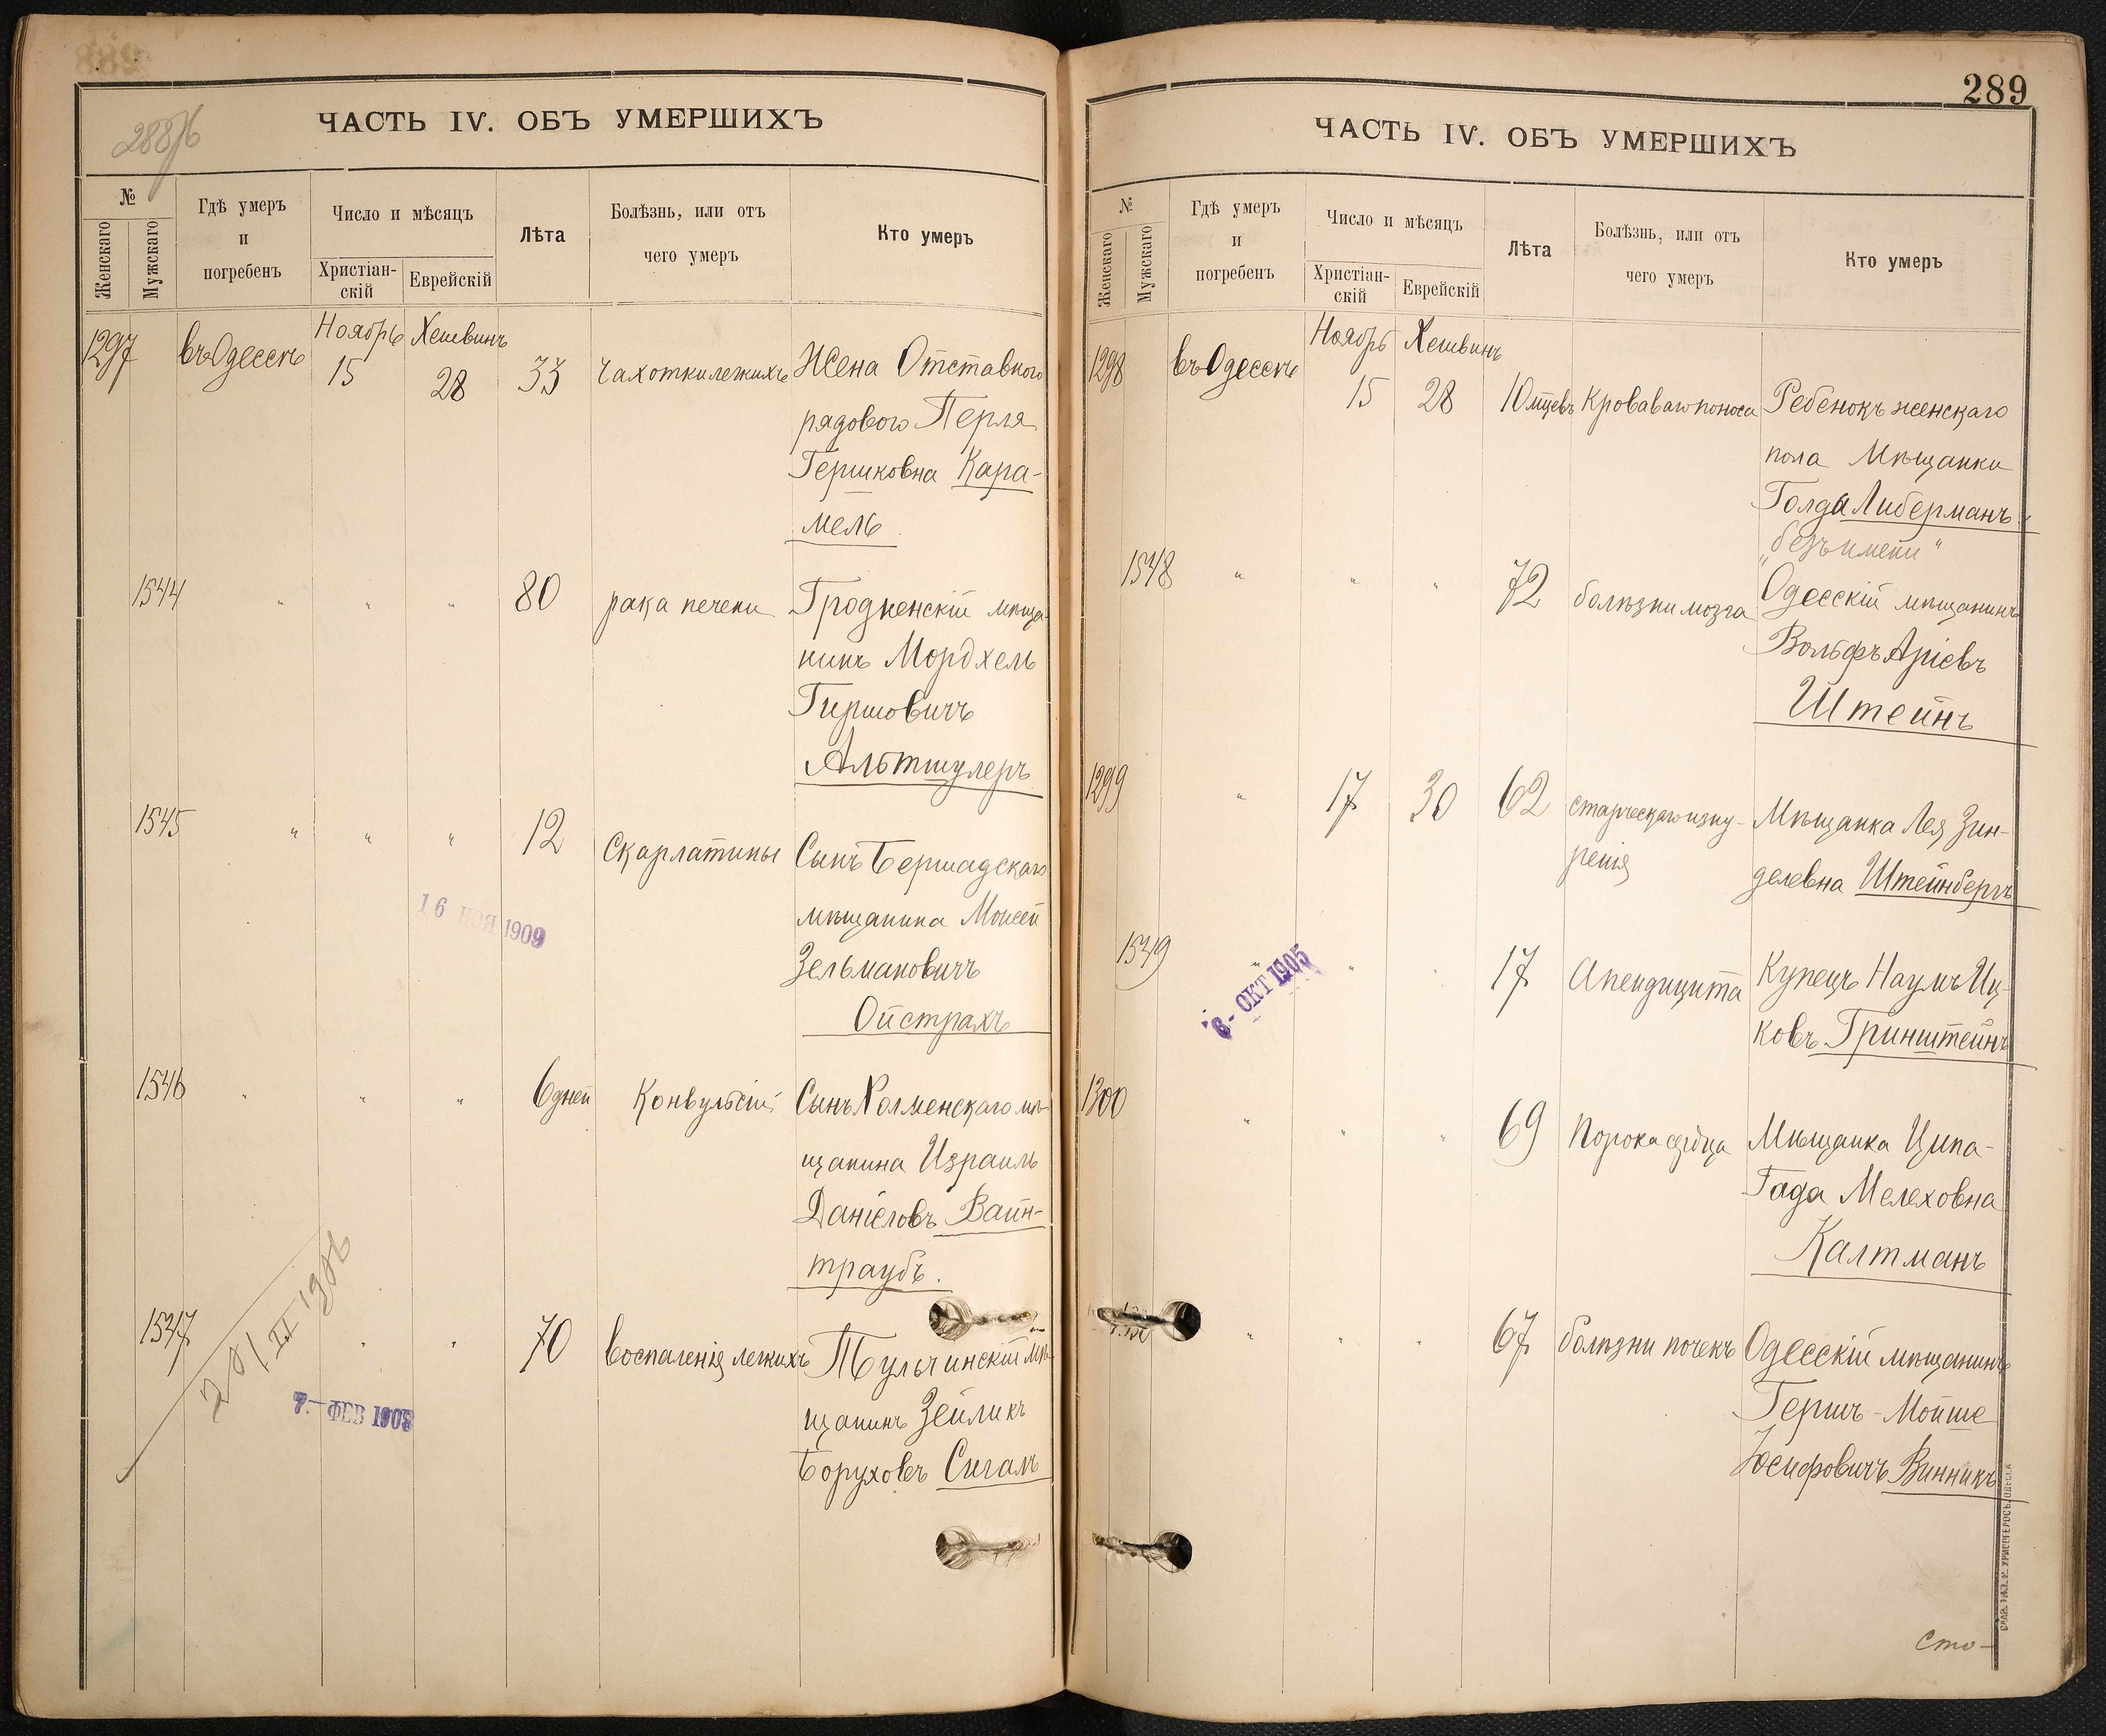 288/б
ЧАСТЬ IV. ОБЪ УМЕРШИХЪ
№
Женскаго
Мужскаго
Гдѣ умеръ
и
погребенъ
Число и мѣсяцъ
Христіан-
скій
Еврейскій
Лѣта
Болѣзнь, или отъ
чего умеръ
Кто умеръ
1297 въ Одессѣ Ноябрь 15 Хешвинъ 28 33 чахотки легкихъ Жена Отставного
рядового Перля
Гершковна Кара-
мель
1544 " " " 80 рака печени Гродненскій мѣща-
нинъ Мордхель
Гиршовичъ
Альтшулеръ
1545 " " " 12 Скарлатины Сынъ Бершадскаго
мѣщанина Моисей
Зельмановичъ
Ойстрахъ
16 НОЯ 1909
1546 " " " 6 дней Конвульсій Сынъ Холменскаго мѣ-
щанина Израиль
Даніеловъ Вайн-
траубъ.
1547 " " 70 воспаленія легкихъ Тульчинскій мѣ-
щанинъ Зейликъ
Боруховъ Сигалъ
7.- ФЕВ 190
289
ЧАСТЬ IV. ОБЪ УМЕРШИХЪ
№
Женскаго
Мужскаго
Гдѣ умеръ
и
погребенъ
Число и мѣсяцъ
Христіан-
скій
Еврейскій
Лѣта
Болѣзнь, или отъ
чего умеръ
Кто умеръ
1298 въ Одессѣ Ноябрь 15 Хешвинъ 28 10 мцевъ Кроваваго поноса Ребенокъ женскаго
пола Мѣщанки
Голда Либерманъ
"безъ имени"
1548 " " " 72 болѣзни мозга Одесскій мѣщанинъ
Вольфъ Аріевъ
Штейнъ
1299 " 17 30 62 старческаго изну-
ренія
Мѣщанка Лея Зин-
делевна Штейнбергъ
1549 " " " 17 Апендицита Купецъ Наумъ Иц-
ковъ Гринштейнъ
6- ОКТ 1905
1300 " " " 69 Порока сердца Мѣщанка Ципа-
Гада Мелеховна
Калтманъ
" " " 67 болѣзни почекъ Одесскій мѣщанинъ
Гершъ-Мойше
Іосифовичъ Винникъ
Сто-